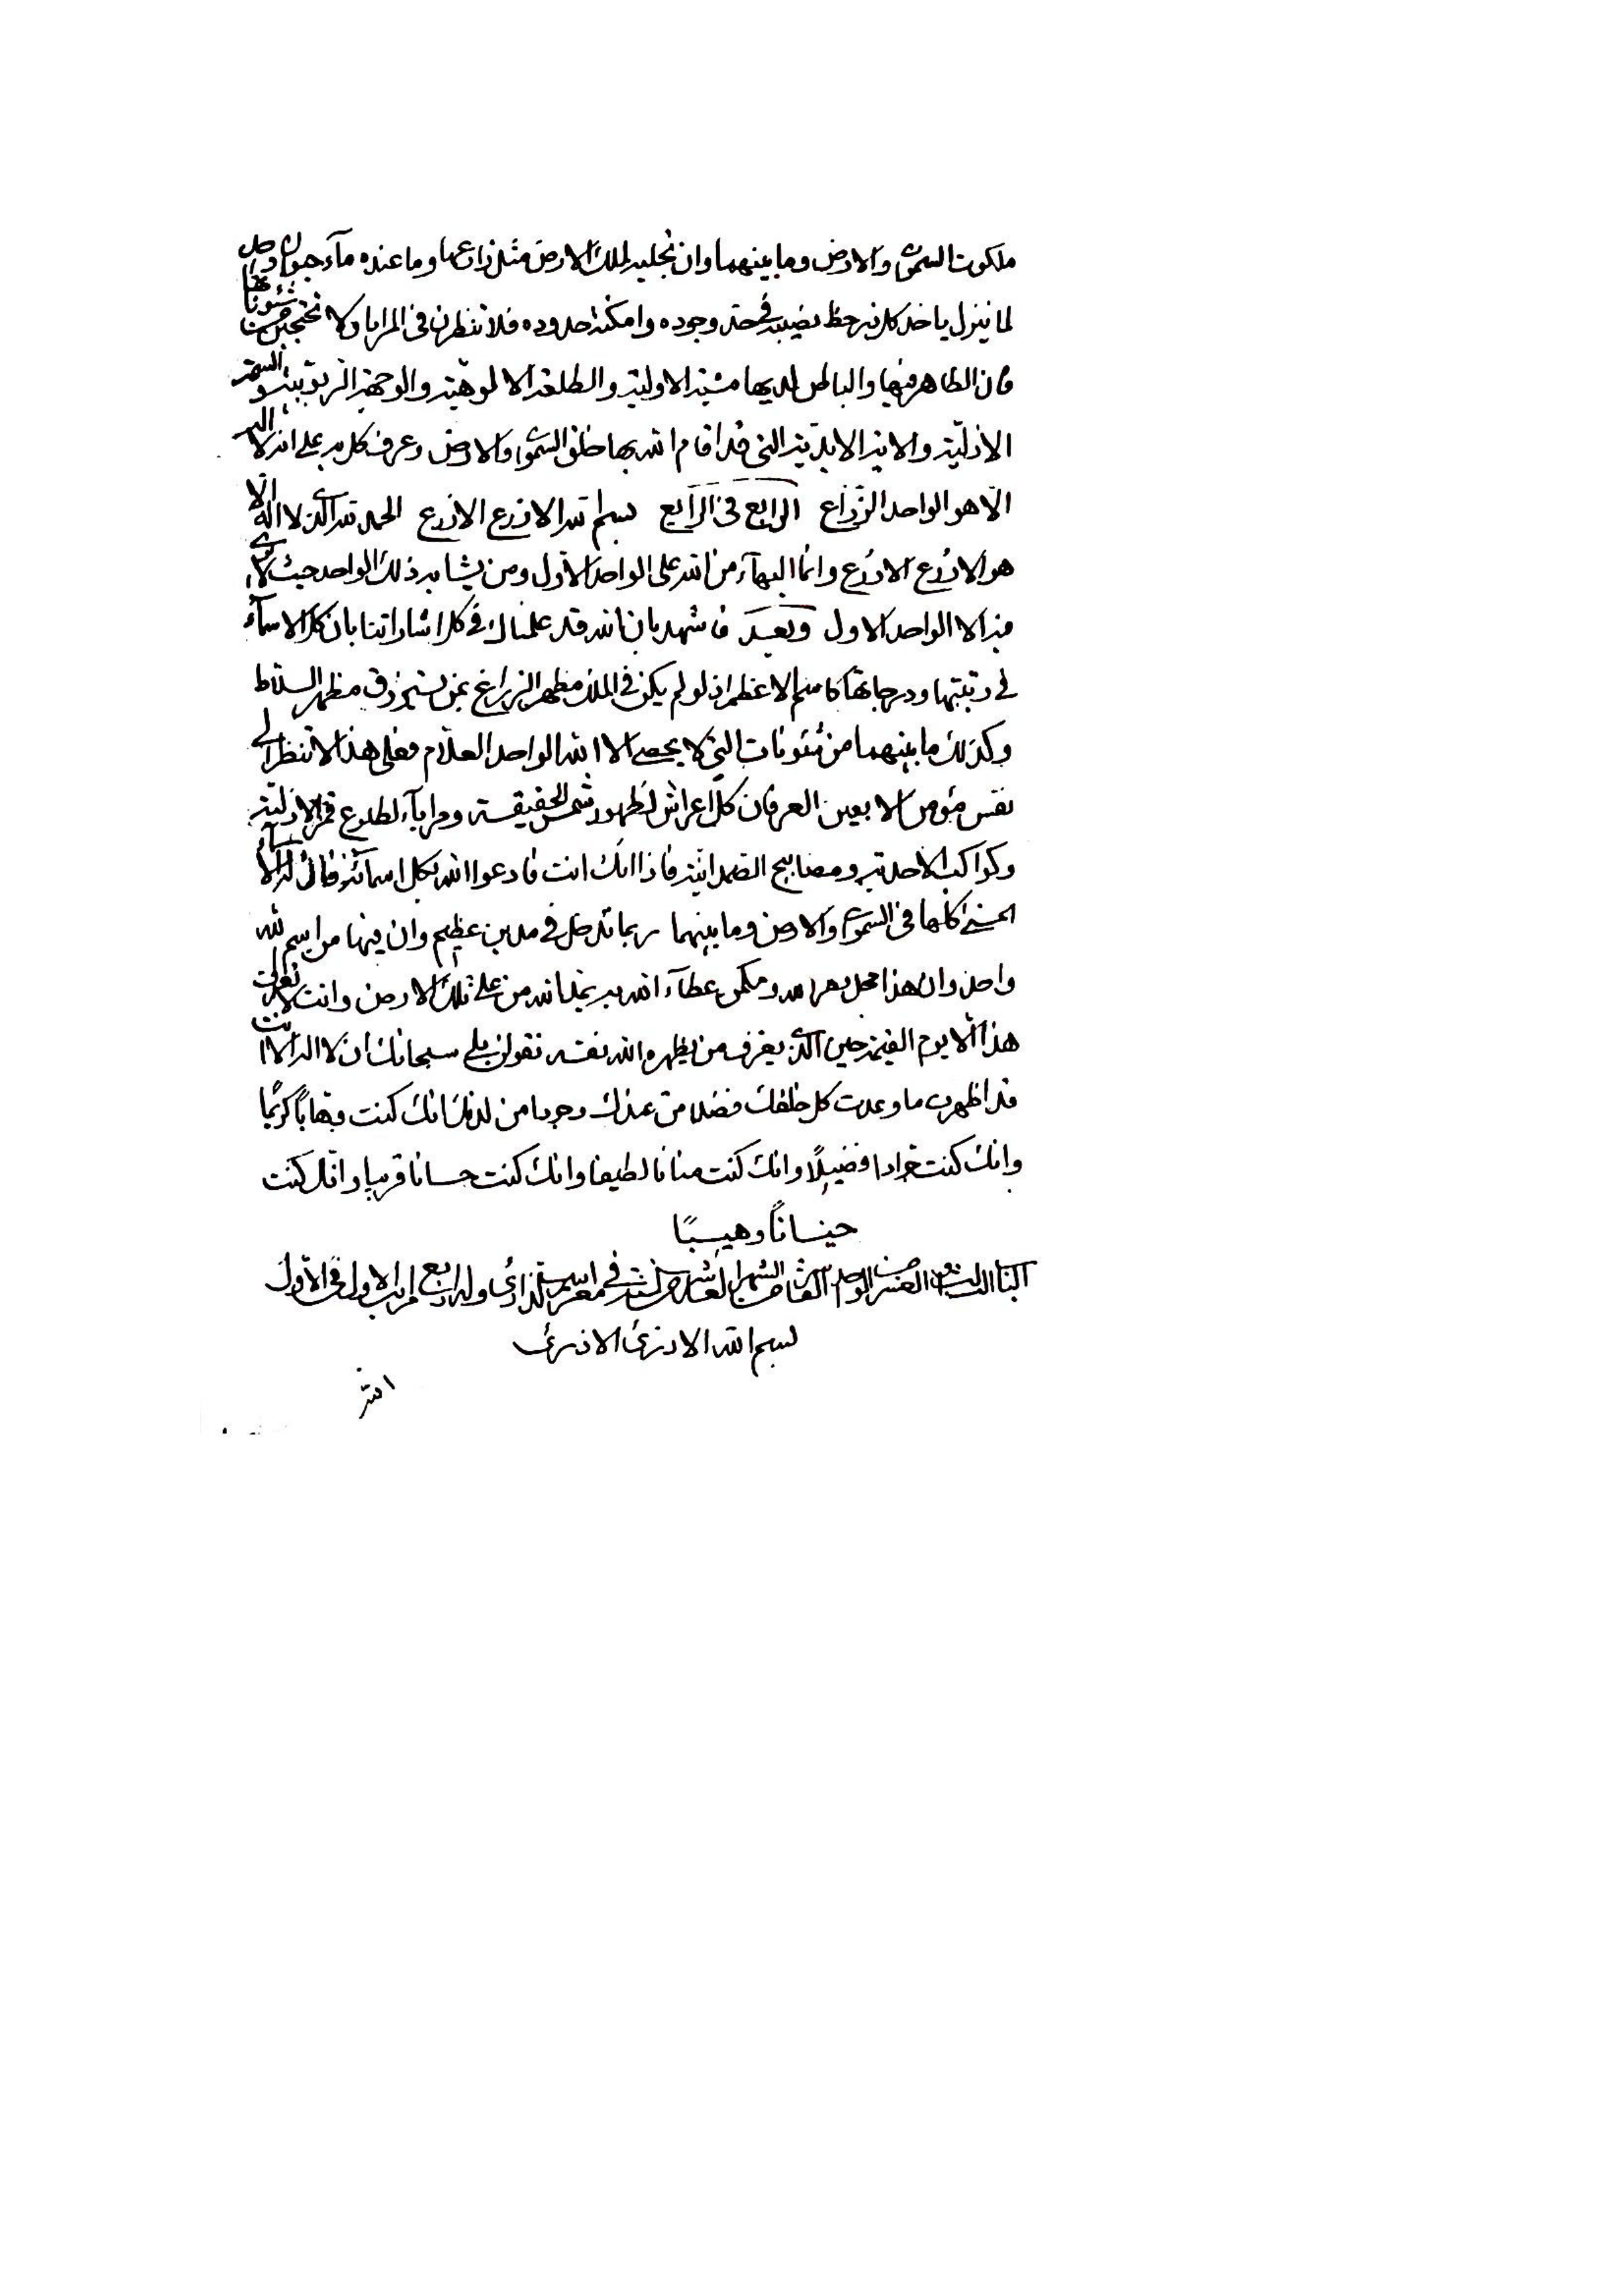 ملكوت السموات والارض وما بينهما وان تجليه لملك الارض مثل زارعها وما عنده ماء حيوان
لما ينزل ياخذ كل نبر حظ نصيبه فى حد وجوده وامكنة حدوده فلا تنظرن فى المرايا ولا تحتجبن
فان الظاهر فيها والباطن لديها مشية الاولية والطلعة الالوهية والوجهة الربوبية
الازلية والانية الابدية التى قد اقام الله بها خلق السموات والارض وعرف كل بر على انه لا اله
الا هو الواحد الزراع الرابع فى الرابع بسم الله الازرع الازرع الحمد لله الذى لا اله الا
هو الازرع الازرع وانما البهاء من الله على الواحد الاول ومن يشابه ذلك الواحد حيث لا يرى
فيه الا الواحد الاول وبعد فاشهد بان الله قد علمناك فى كل اشاراتنا بان كل الاسماء
فى رتبتها ودرجاتها كاسم الاعظم اذ لو لم يكن فى الملك مظهر الزراع عمن يسترزق مظهر السلاط
وكذلك ما بينهما من شئونات التى لا يحصى الا الله الواحد العلام فعلى هذا لا تنظر الى
نفس مؤمن الا بعين العرفان كل اعراش لظهور شمس الحقيقة ومراياء لطلوع قمر الازلية
وكواكب الاحدية ومصابيح الصمدانية فاذا انك انت فادعوا الله بكل اسمائه فان له الاسماء
الحسنى كلها فى السموات والارض وما بينهما ربما تدخل فى مدين عظيم وان فيها من اسم الله
واحد وان هذا محل ومكمن عطاء الله به ينجى الله من على تلك الارض وانت لا تعرفت
هذا الا يوم القيمة حين الذى يعرف من يظهره الله نفسه تقولن بلى سبحانك ان لا اله الا انت
قد اظهرت ما وعدت كل خلقك فضلا من عندك وجودا من لدنك انك كنت وهابا كريما
وانك كنت فضيلا وانك كنت منانا لطيفا وانك كنت حسانا قريبا وانك كنت
حينانا وهيبا
الباب من الواحد من الشهر العاشر من السنة فى معرفة اسم الذارئ وله اربع مراتب الاول فى الاول
بسم الله الاذرئ الاذرئ
الله